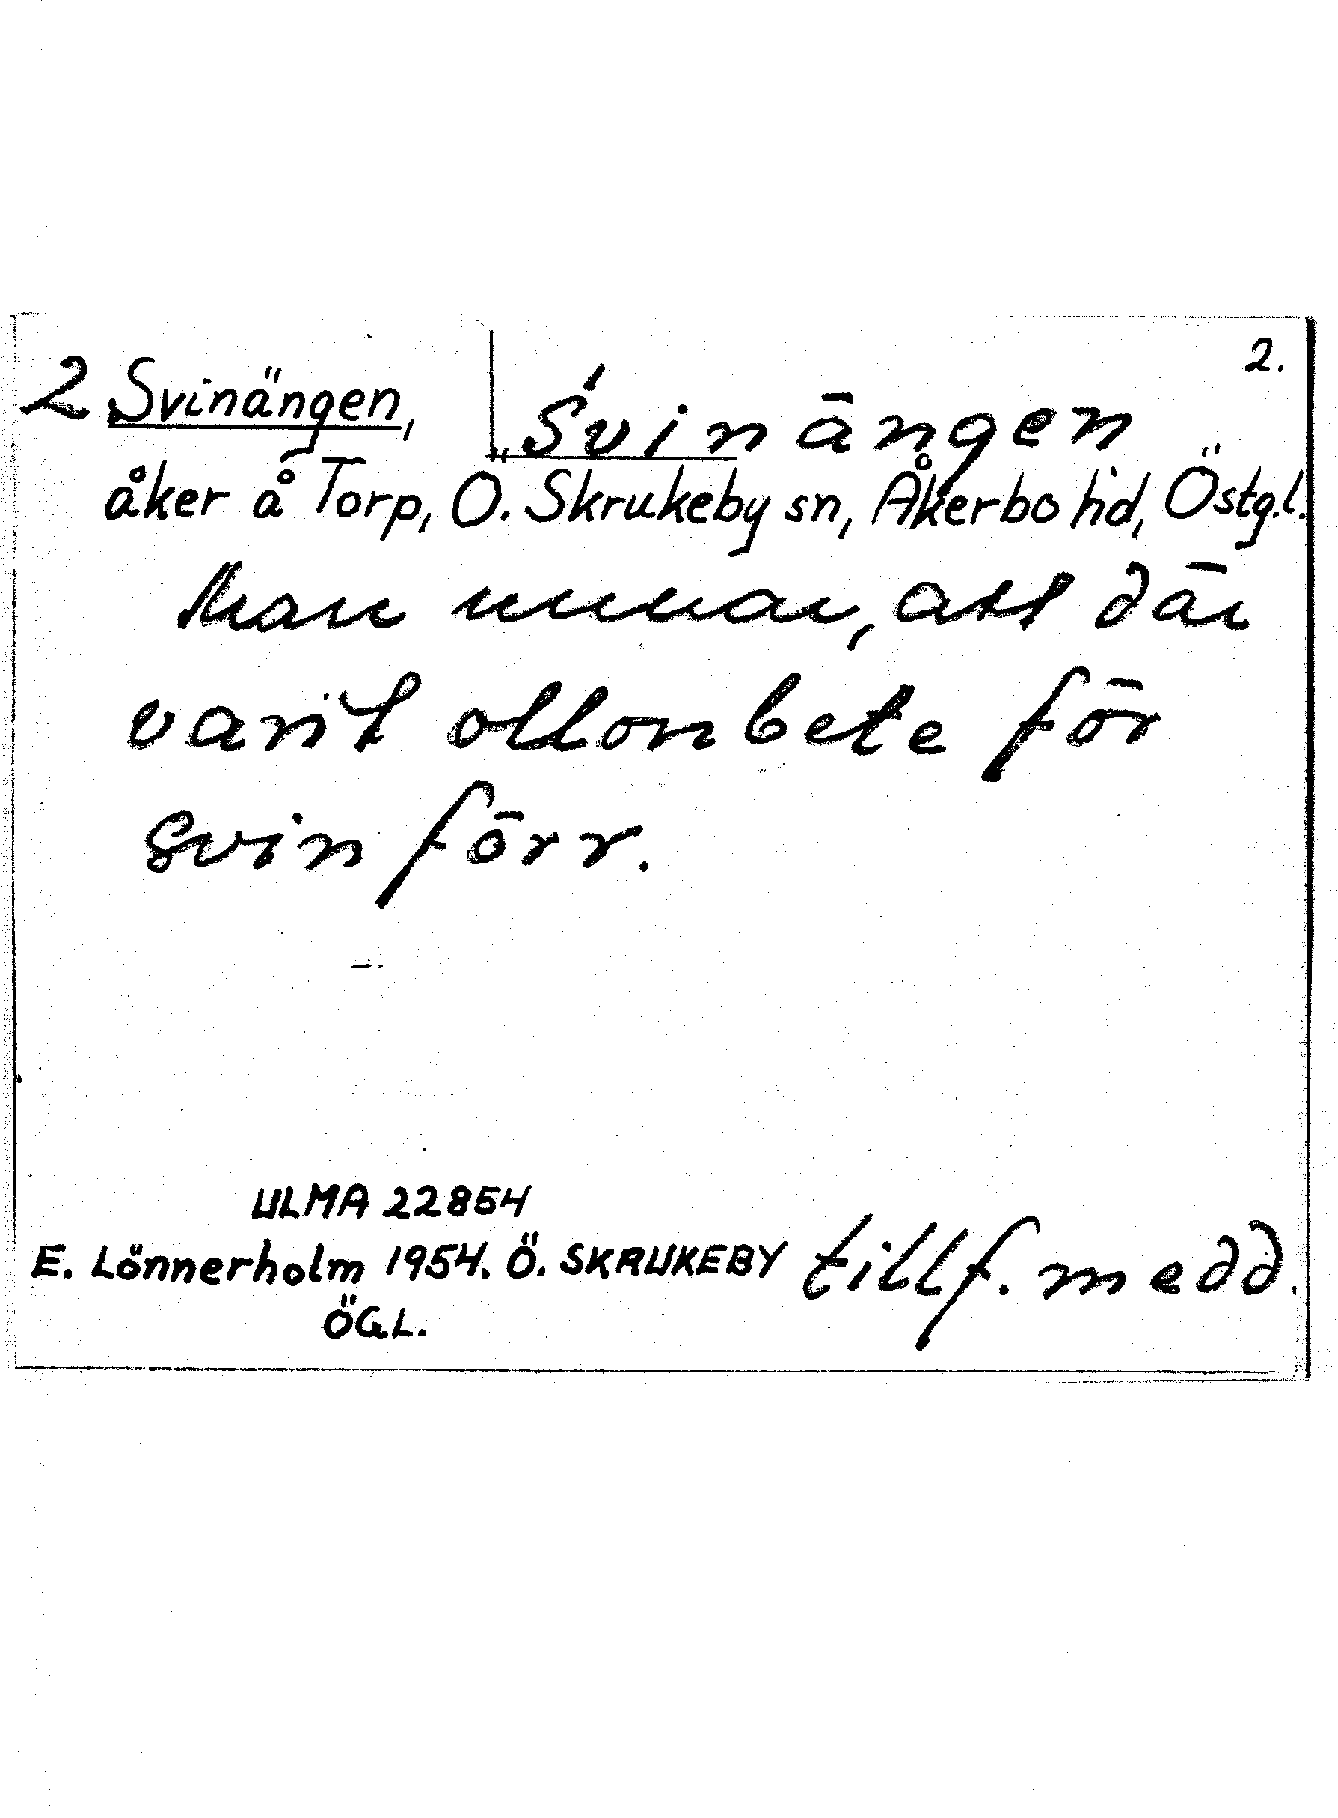 2.
2 Svinängen, Svinängen
åker å Torp, Ö. Skrukeby sn, Åkerbo hd, Östg.l.
Man menar, att där
varit ollonbete för
svin förr.
ULMA 22854
E. Lönnerholm 1954. Ö. SKRUKEBY tillf. medd.
ÖGL.